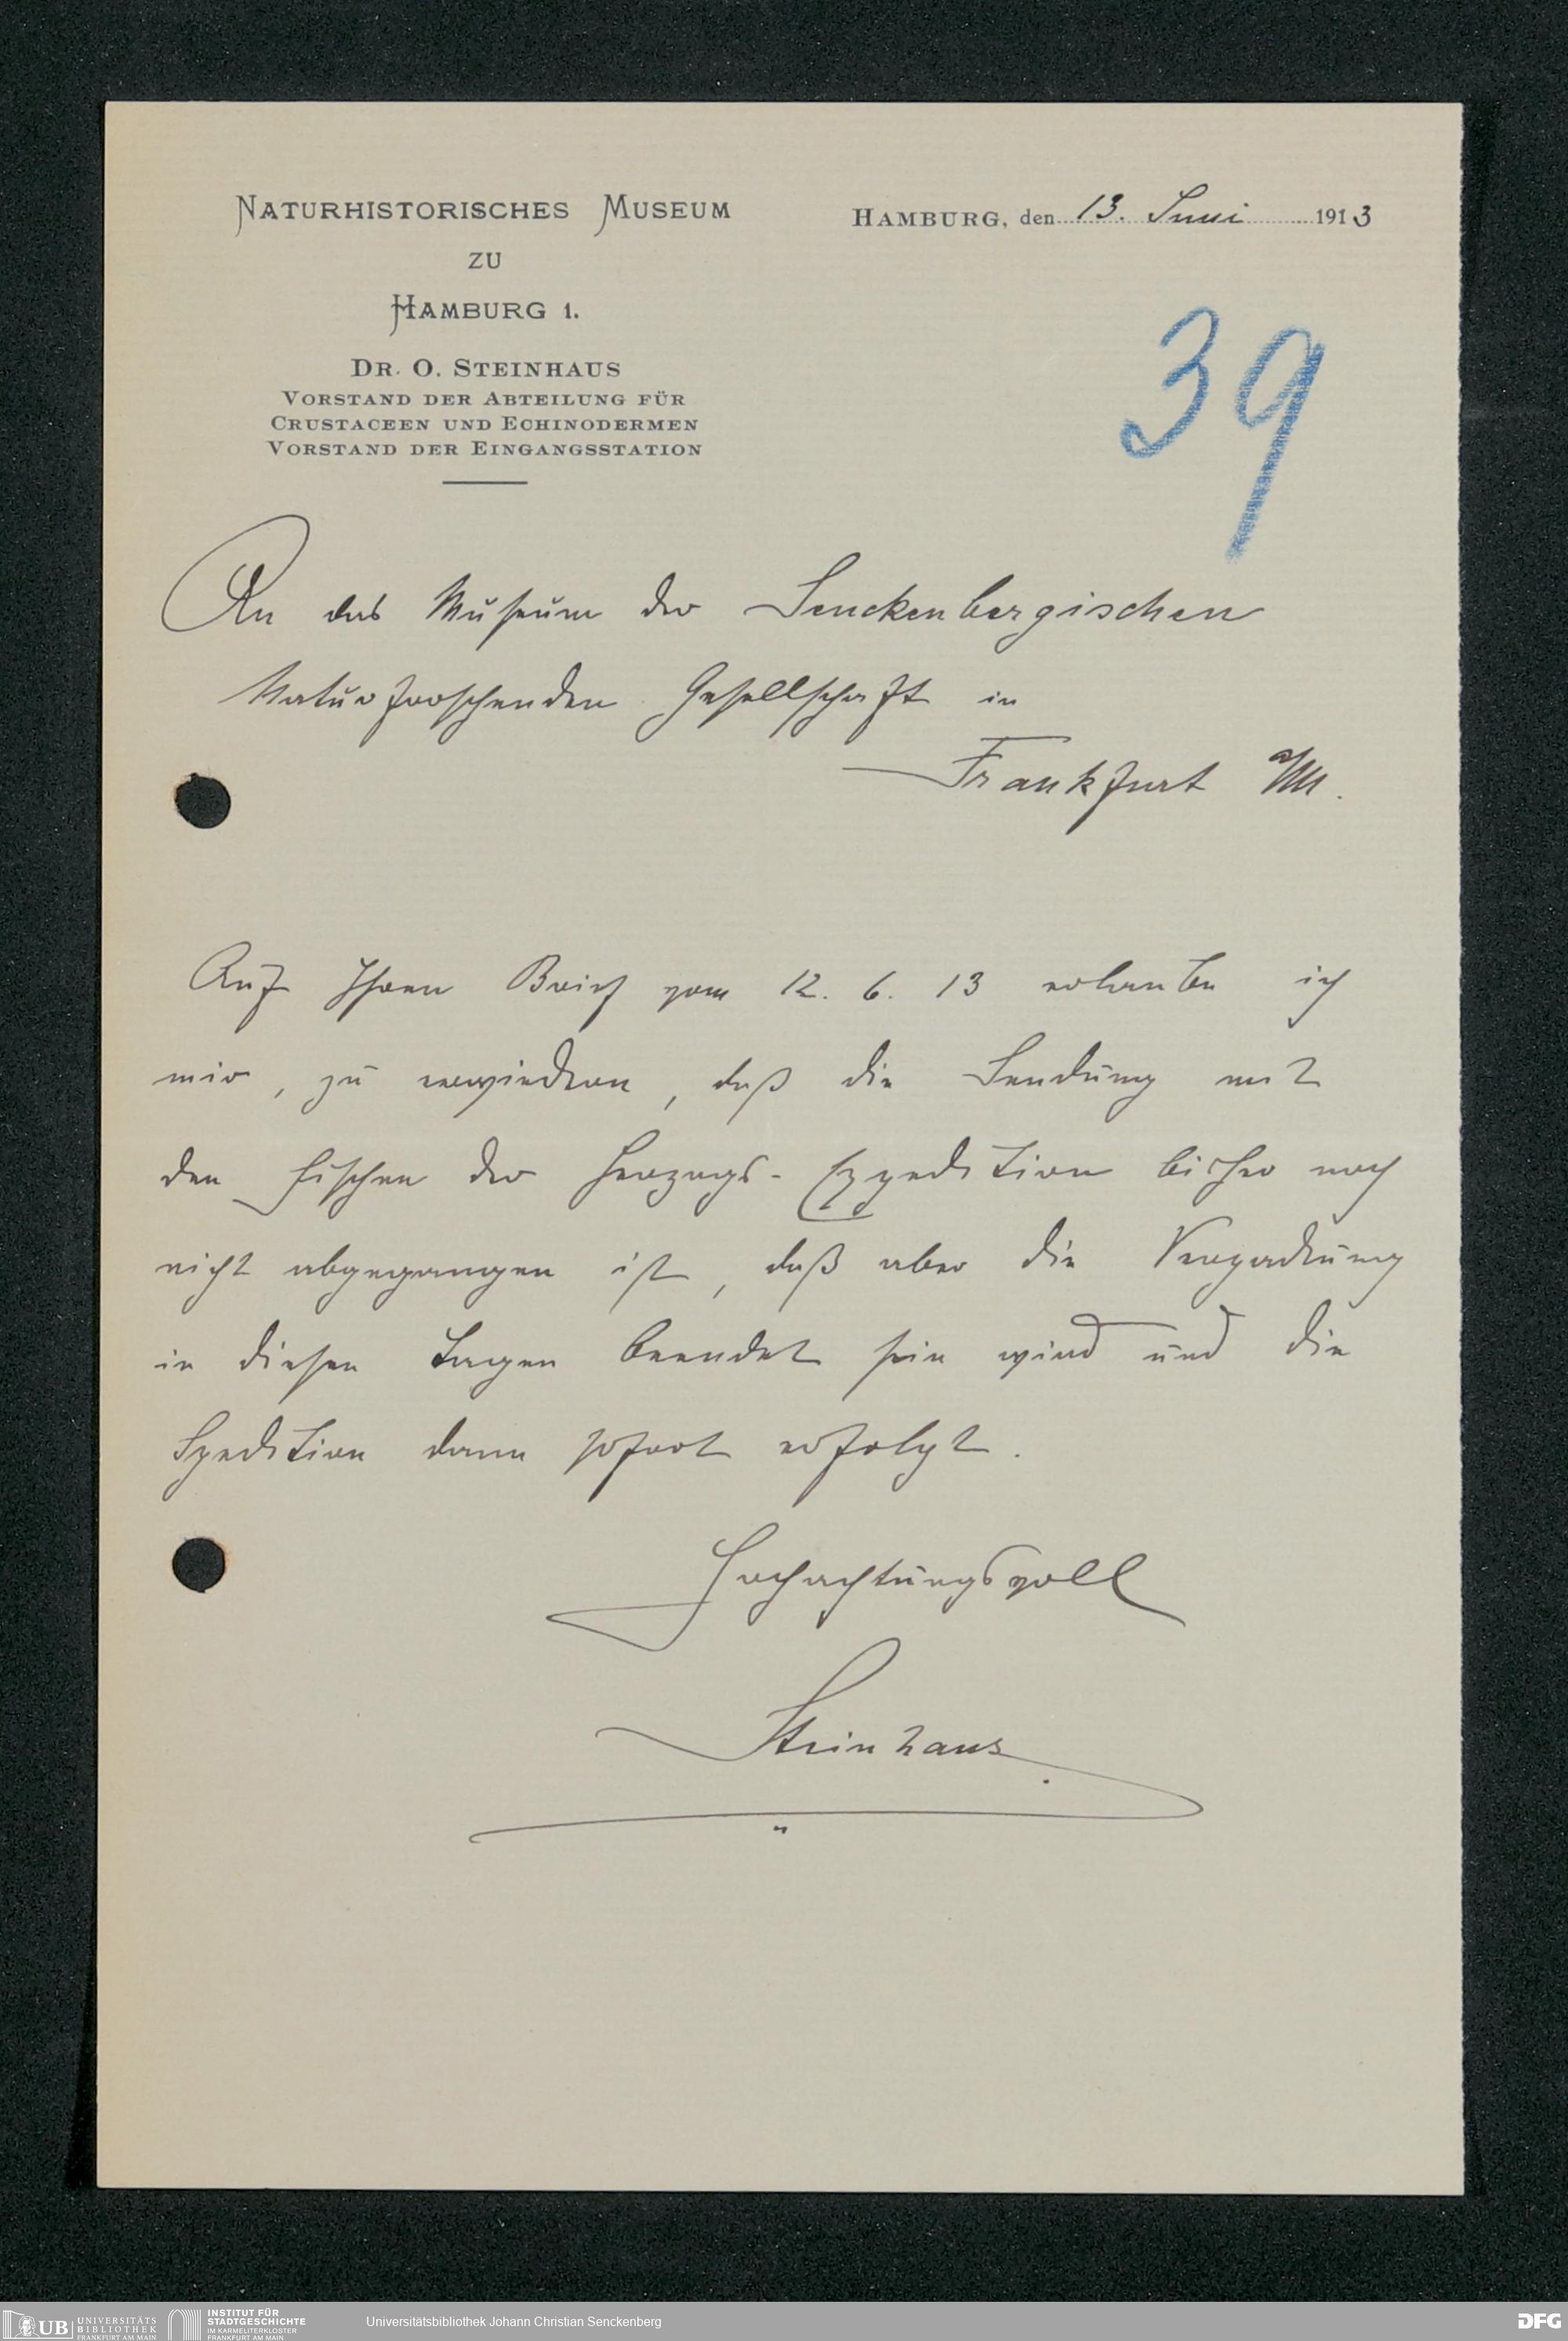 NATURHISTORISCHES MUSEUM
ZU
HAMBURG 1.
DR. O. STEINHAUS
VORSTAND DER ABTEILUNG FÜR
CRUSTACEEN UND ECHINODERMEN
VORSTAND DER EINGANGSSTATION
HAMBURG, den 13. Juni 1913
39
An das Museum der Senckenbergischen
Naturforschenden Gesellschaft in
Frankfurt a/M.
Auf Ihren Brief vom 12. 6. 13 erlaube ich
mir, zu erwiedern, daß die Sendung mit
den Fischen der Herzogs-Expedition bisher noch
nicht abgegangen ist, daß aber die Verpackung
in diesen Tagen beendet sein wird und die
Spedition dann sofort erfolgt.
Hochachtungsvoll
Steinhaus
UB UNIVERSITÄTS
BIBLIOTHEK
FRANKFURT AM MAIN
INSTITUT FÜR
STADTGESCHICHTE
IM KARMELITERKLOSTER
FRANKFURT AM MAIN
Universitätsbibliothek Johann Christian Senckenberg
DFG